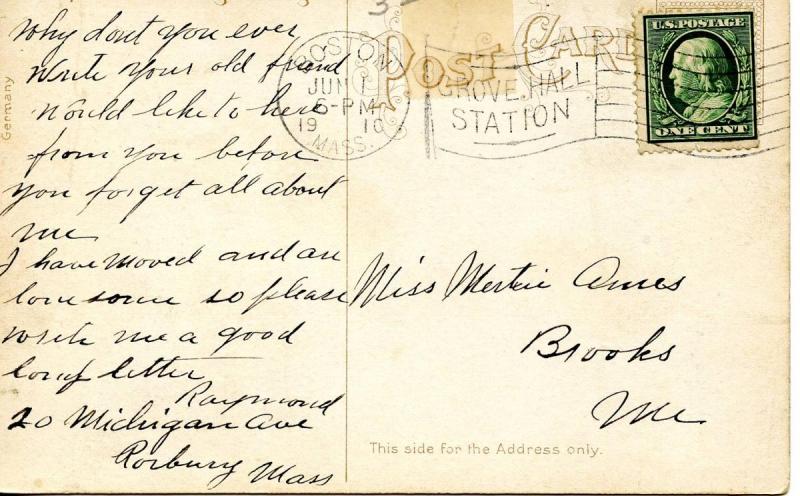 Why dont you ever
write your old friend
would like to here
from you before
you forget all about
me
I have moved and am
lonesome so please
write me a good
long letter
Raymond
20 Michigan Ave
Roxbury Mass
Germany
POST CARD
BOSTON
JUN 1
6-PM
19 10
MASS.
GROVE HALL
STATION
U.S. POSTAGE
ONE CENT
Miss Mertie Ames
Brooks
Me
This side for the Address only.